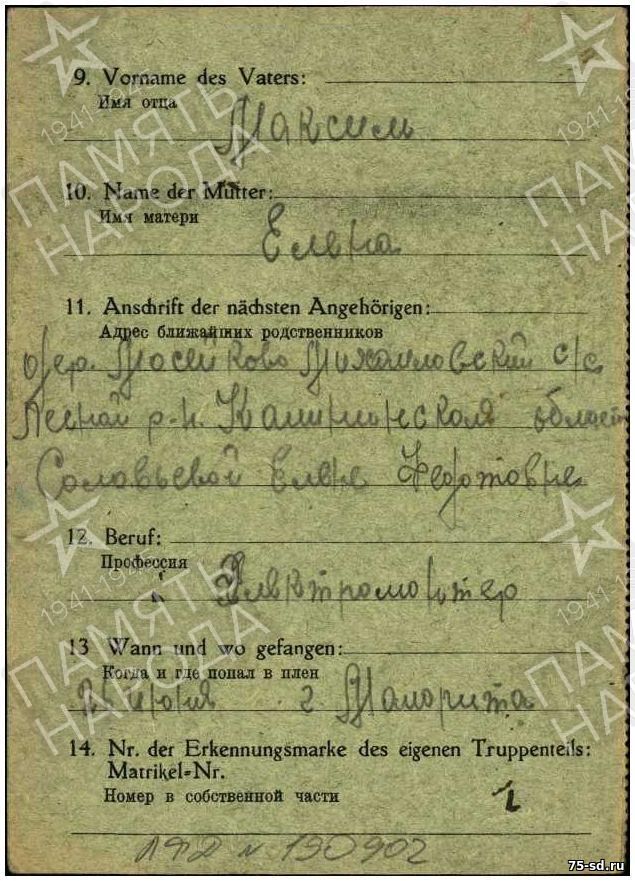 9. Vorname des Vaters:
Имя отца
Максим
10. Name der Mutter:
Имя матери
Елена
11. Anschrift der nächsten Angehörigen:
Адрес ближайших родственников
дер. Мосейково Михайловский с/с
Лесной р-н. Калининской области
Соловьевой Елене Федотовне
12. Beruf:
Профессия
Электромонтер
13 Wann und wo gefangen:
Когда и где попал в плен
июня г Малорита
14. Nr. der Erkennungsmarke des eigenen Truppenteils:
Matrikel=Nr.
Номер в собственной части
№ 190902
ПАМЯТЬ НАРОДА
1941-1945
75-sd.ru